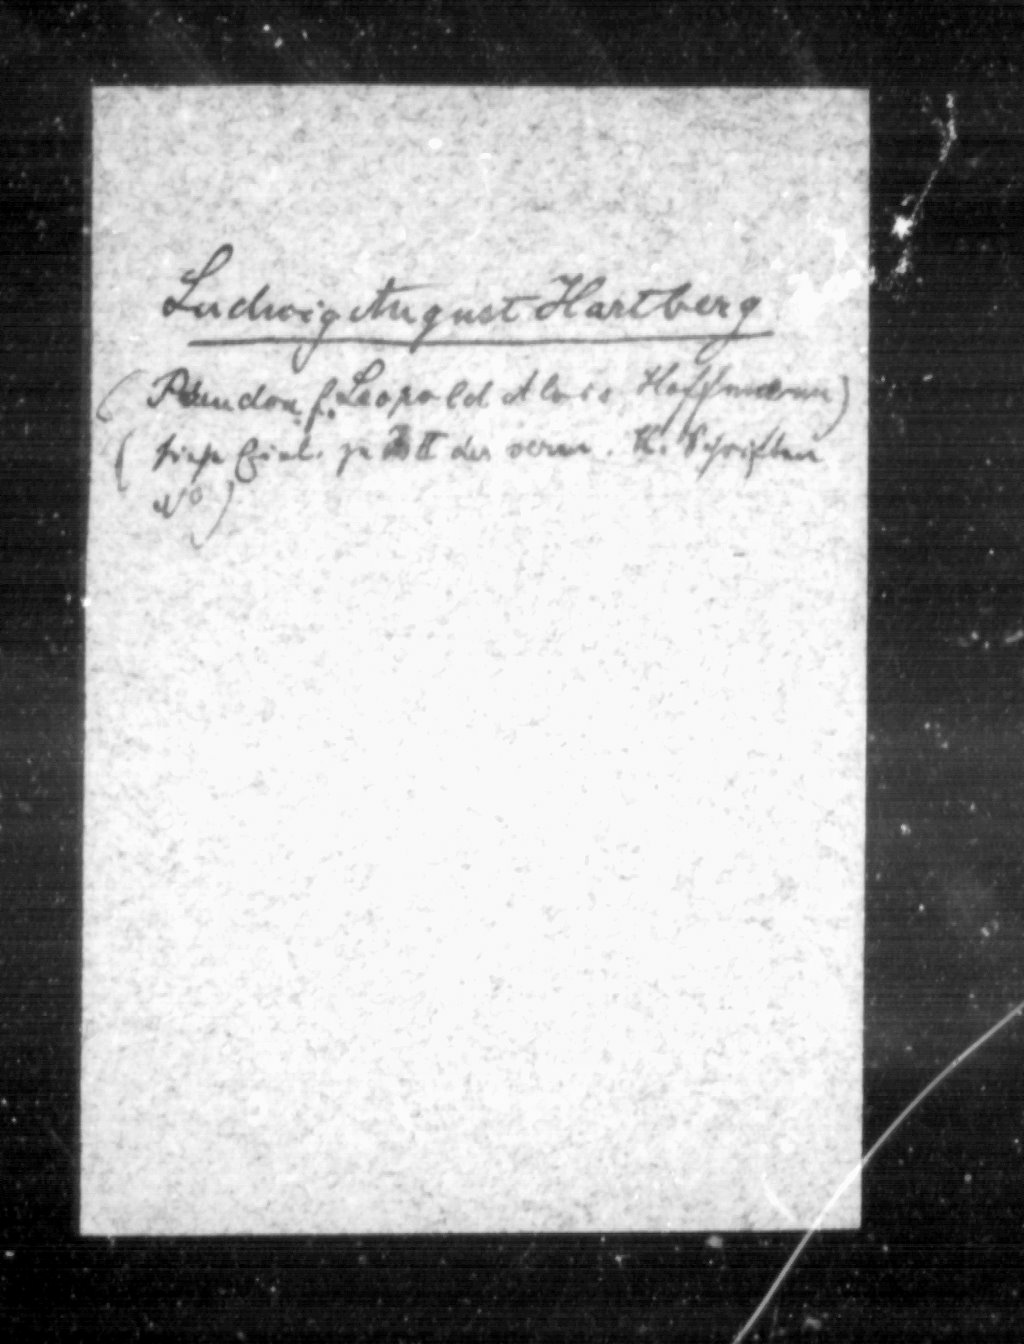 Ludwig August Hartberg
(Pseudon. f. Leopold Alois Hoffmann)
(siehe Einl. zu Bd II der verm. kl. Schriften
No )